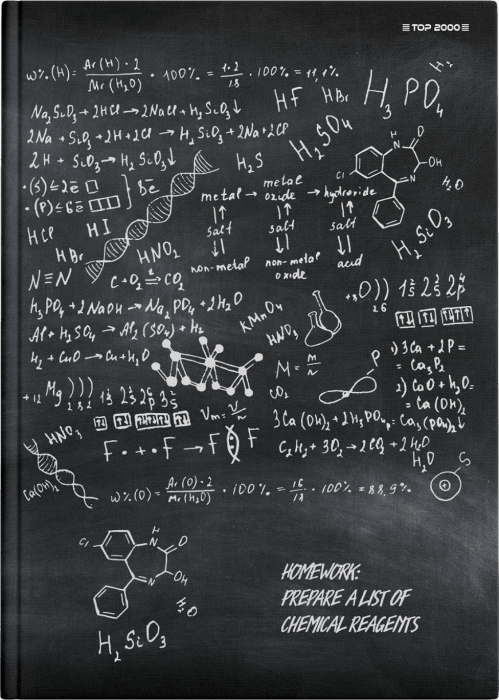 TOP 2000
ω%(H) = Ar(H)·2 / Mr(H₂O) · 100% = 1·2 / 18 · 100% = 11,1%
HF HBr H₃PO₄
Na₂SiO₃ + 2HCl → 2NaCl + H₂SiO₃↓
2Na + SiO₃ + 2H + 2Cl → H₂SiO₃ + 2Na + 2Cl
H₂SO₄
2H + SiO₃ → H₂SiO₃↓
H₂S
H N O OH Cl N
H₂O
·(S) ≤ 2ē
·(P) ≤ 6ē
8ē
metal → metal oxide → hydroxide
salt salt salt
non-metal non-metal oxide acid
HCl HI
HBr HNO₂
H₂SiO₃
N≡N
C + O₂ ⇌ CO₂
H₃PO₄ + 2NaOH → Na₂PO₄ + 2H₂O
KMnO₄
HNO₃
+8O)) 1s² 2s² 2p⁴
2 6
Al + H₂SO₄ → Al₂(SO₄) + H₂
H₂ + CuO → Cu + H₂O
M = m/n
CO₂
P
1) 3Ca + 2P =
= Ca₃P₂
2) CaO + H₂O =
= Ca(OH)₂
+12 Mg))) 1s² 2s² 2p⁶ 3s²
2 8 2
Vm = V/n
3Ca(OH)₂ + 2H₃PO₄ = Ca₃(PO₄)₂↓
HNO₃
F· + ·F → F F
C₂H₂ + 3O₂ → 2CO₂ + 2H₂O
H₂O
S
Ca(OH)₂
ω%(O) = Ar(O)·2 / Mr(H₂O) · 100% = 16 / 18 · 100% = 88,9%
H N O OH Cl N
H₂SiO₃
HOMEWORK:
PREPARE A LIST OF
CHEMICAL REAGENTS